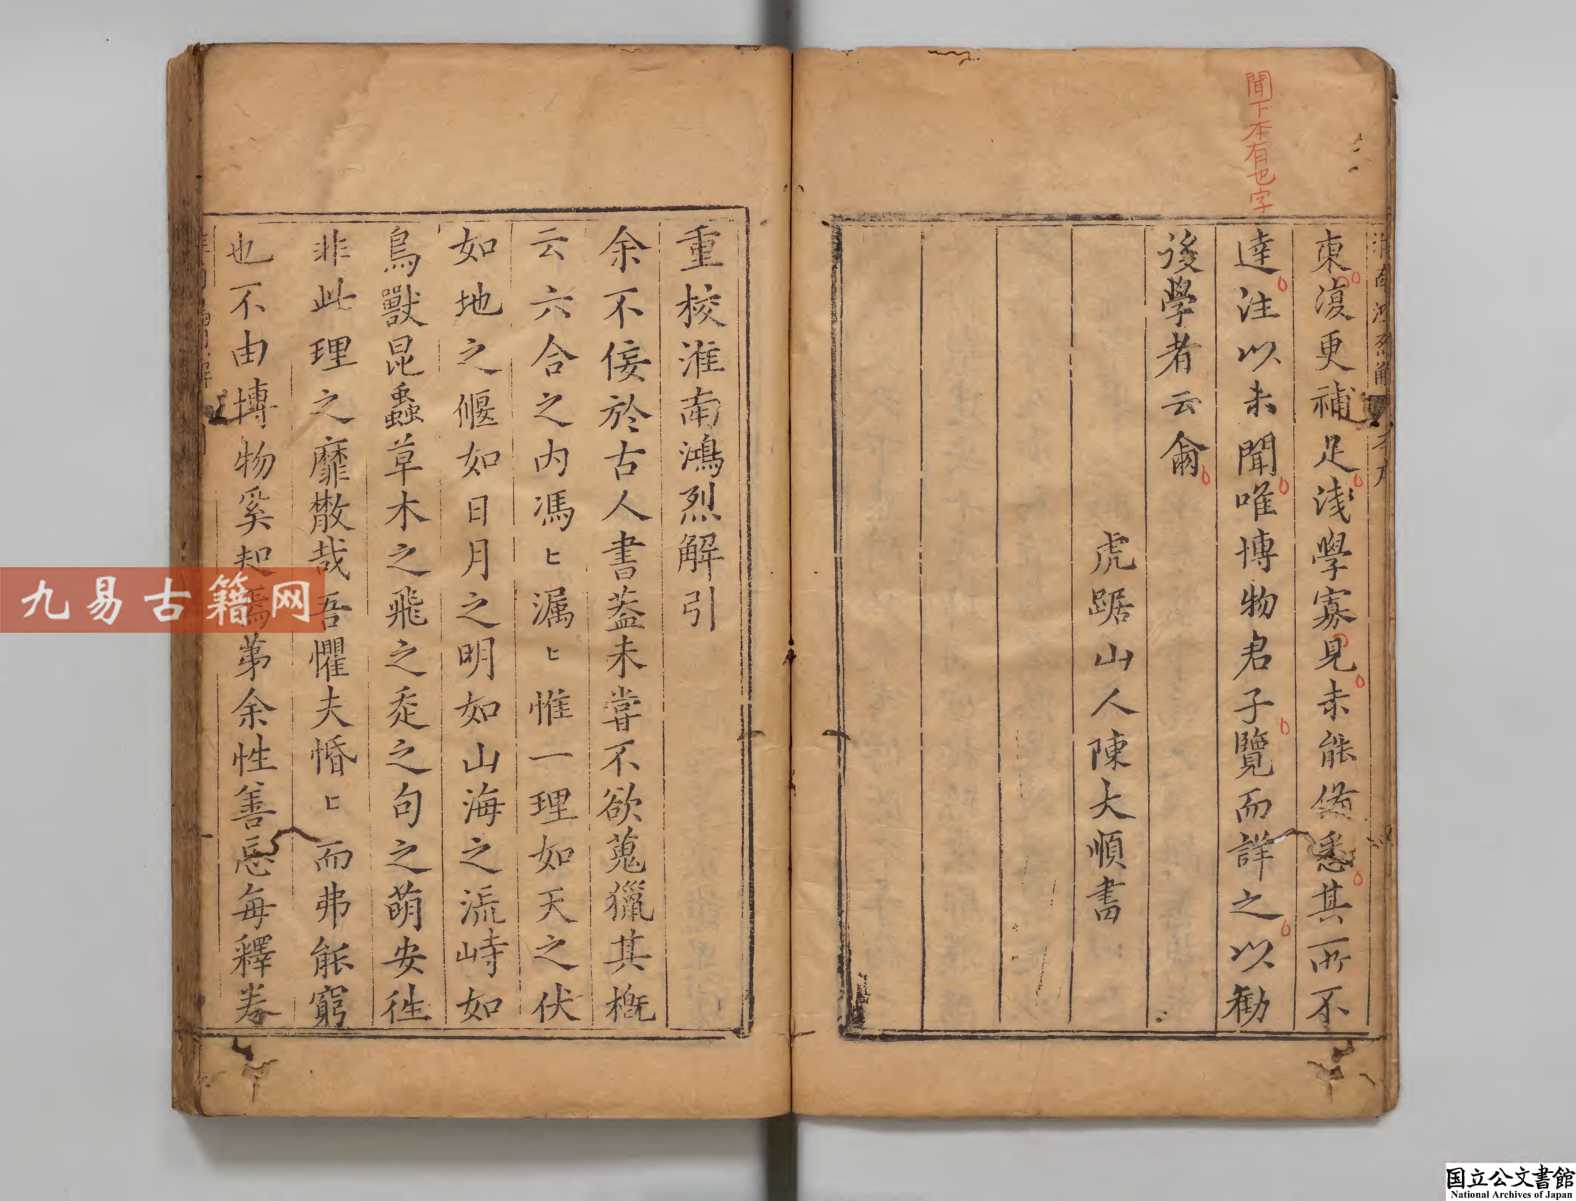 聞下本有也字
東復更補足淺學寡見未能備悉其所不
達注以未聞唯博物君子覽而詳之以勸
後學者云爾
虎踞山人陳大順書
重校淮南鴻烈解引
余不佞於古人書蓋未嘗不欲蒐獵其槪
云六合之內馮〻漏〻惟一理如天之伏
如地之偃如日月之明如山海之流峙如
鳥獸昆蟲草木之飛之走之句之萌安徃
非此理之靡散哉吾懼夫惛〻而弗能窮
也不由博物奚起焉第余性善忘每釋卷
九易古籍网
国立公文書館
National Archives of Japan